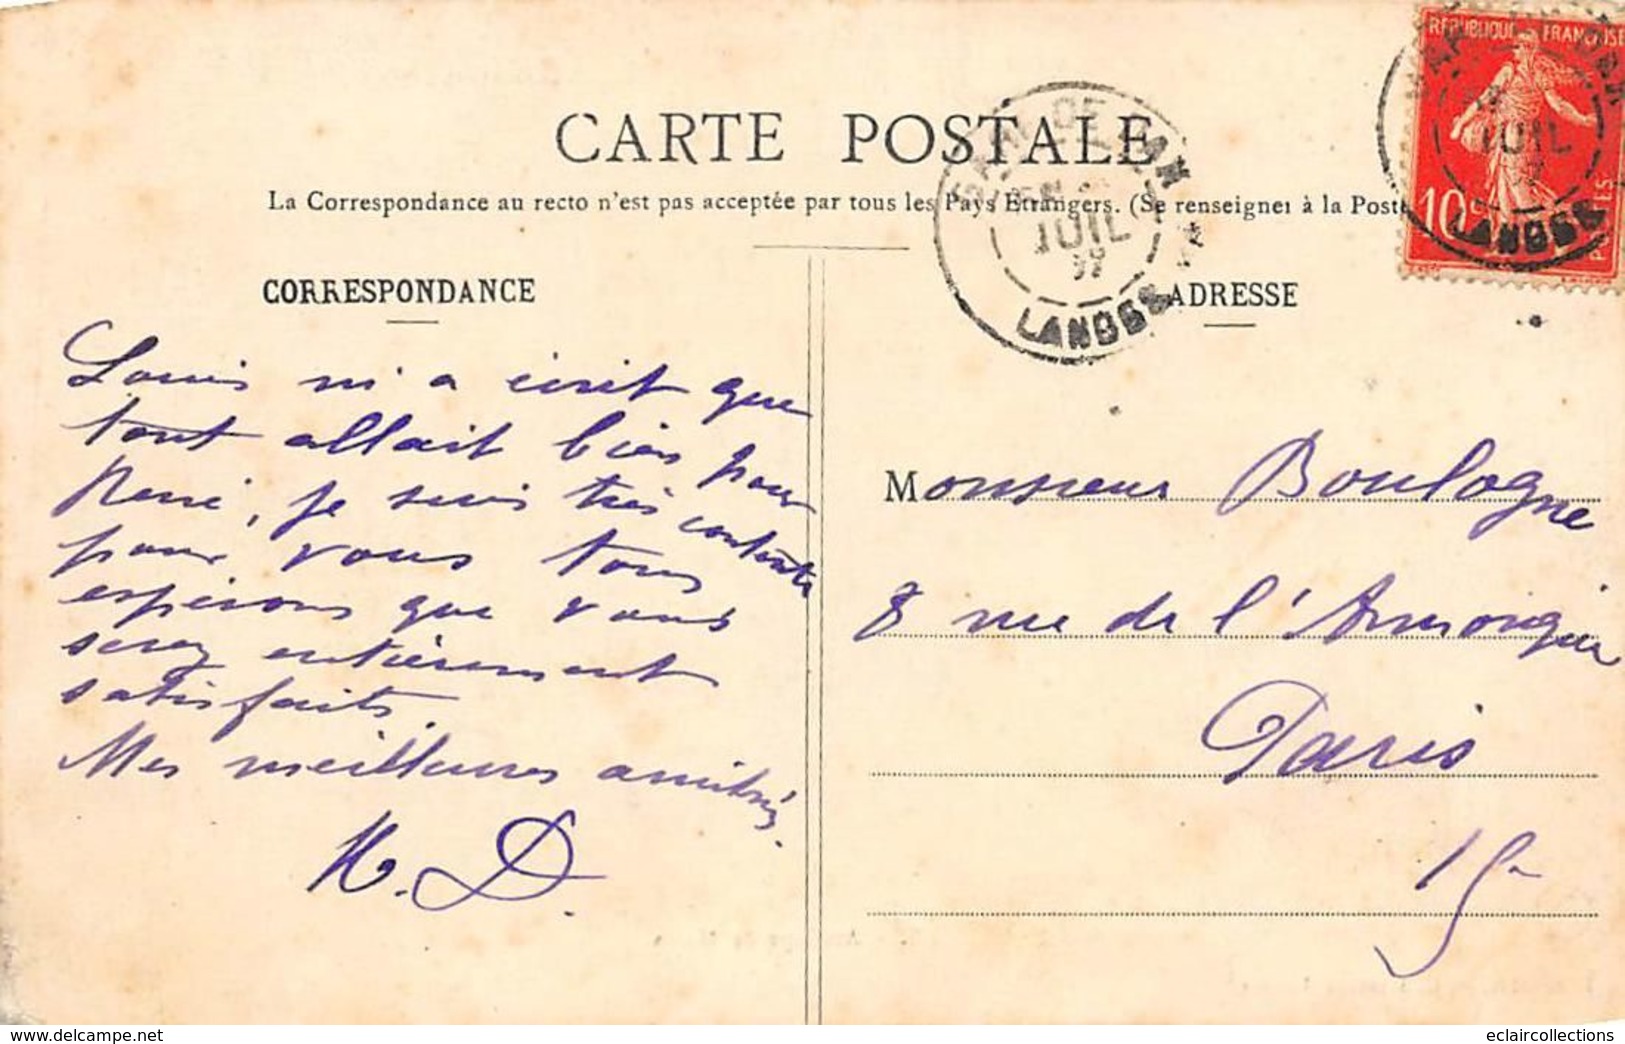 RÉPUBLIQUE FRANÇAISE
10c
POSTES
JUIL
LANDES
CARTE POSTALE
La Correspondance au recto n'est pas acceptée par tous les Pays Étrangers. (Se renseigner à la Poste
JUIL
LANDES
CORRESPONDANCE
Louis m'a écrit que
tout allait bien pour
René, je suis très contente
pour vous tous
espérons que vous
serez entièrement
satisfaits.
Mes meilleures amitiés.
H. D.
ADRESSE
Monsieur Boulogne
8 rue de l'Armorique
Paris
15e
eclaircollections